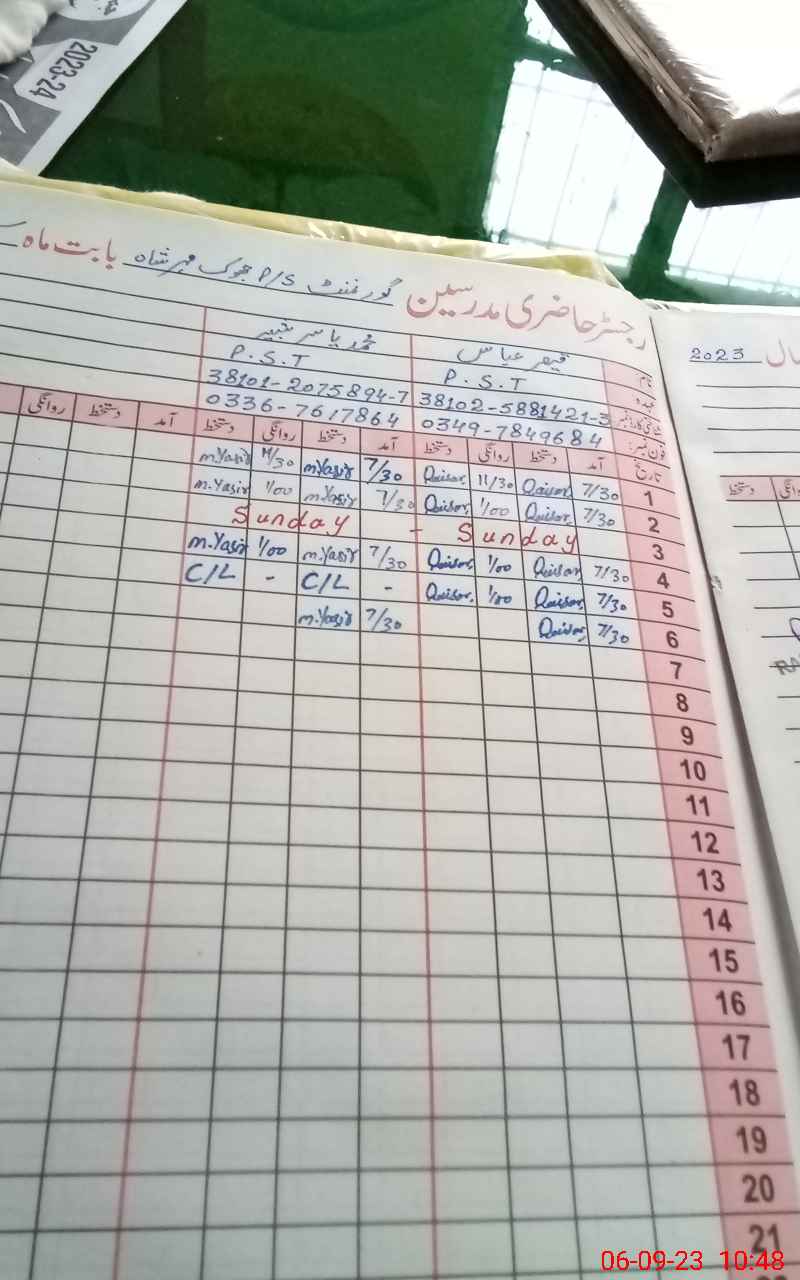 2023-24
رجسٹر حاضری مدرسین گورنمنٹ P/S جھوک مہر شاہ بابت ماہ
سال 2023
نام: قیصر عباس محمد یاسر شبیر
عہدہ P.S.T P.S.T
شناختی کارڈ نمبر 38102-5881421-3 38101-2075894-7
فون نمبر: 0349-7849684 0336-7617864
تاریخ آمد دستخط روانگی دستخط آمد دستخط روانگی دستخط آمد دستخط روانگی
دستخط
1 7/30 Qaisar 11/30 Qaisar 7/30 m.Yasir 11/30 m.Yasir
2 7/30 Qaisar 1/00 Qaisar 7/30 m.Yasir 1/00 m.Yasir
3 Sunday - Sunday
4 7/30 Qaisar 1/00 Qaisar 7/30 m.Yasir 1/00 m.Yasir
5 7/30 Qaisar 1/00 Qaisar - C/L - C/L
6 7/30 Qaisar 7/30 m.Yasir
7
8
9
10
11
12
13
14
15
16
17
18
19
20
21
06-09-23 10:48